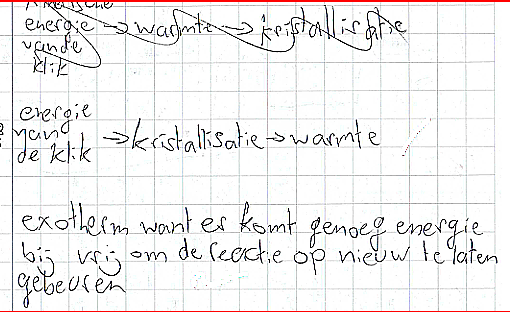 energie → warmte → kristallisatie
van de
klik
energie
van
de klik → kristallisatie → warmte
exotherm want er komt genoeg energie
bij vrij om de reactie op nieuw te laten
gebeuren